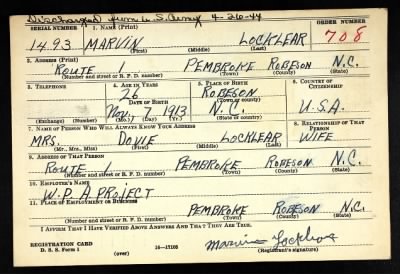 Discharged from U.S. Army 4-26-44
SERIAL NUMBER 1. NAME (Print) ORDER NUMBER
1493 MARVIN LOCKLEAR 708
(First) (Middle) (Last)
2. ADDRESS (Print)
ROUTE 1 PEMBROKE ROBESON N.C.
(Number and street or R. F. D. number) (Town) (County) (State)
3. TELEPHONE 4. AGE IN YEARS 5. PLACE OF BIRTH 6. COUNTRY OF CITIZENSHIP
26 ROBESON
DATE OF BIRTH (Town or county)
Nov. 7 1913 N.C. U.S.A.
(Exchange) (Number) (Mo.) (Day) (Yr.) (State or country)
7. NAME OF PERSON WHO WILL ALWAYS KNOW YOUR ADDRESS 8. RELATIONSHIP OF THAT PERSON
MRS. DOVIE LOCKLEAR WIFE
(Mr., Mrs., Miss) (First) (Middle) (Last)
9. ADDRESS OF THAT PERSON
ROUTE 1 PEMBROKE ROBESON N.C.
(Number and street or R. F. D. number) (Town) (County) (State)
10. EMPLOYER'S NAME
W.P.A PROJECT
11. PLACE OF EMPLOYMENT OR BUSINESS
PEMBROKE ROBESON N.C.
(Number and street or R. F. D. number) (Town) (County) (State)
I AFFIRM THAT I HAVE VERIFIED ABOVE ANSWERS AND THAT THEY ARE TRUE.
REGISTRATION CARD
D. S. S. Form 1 16-17105 Marvin Locklear
(over) (Registrant's signature)